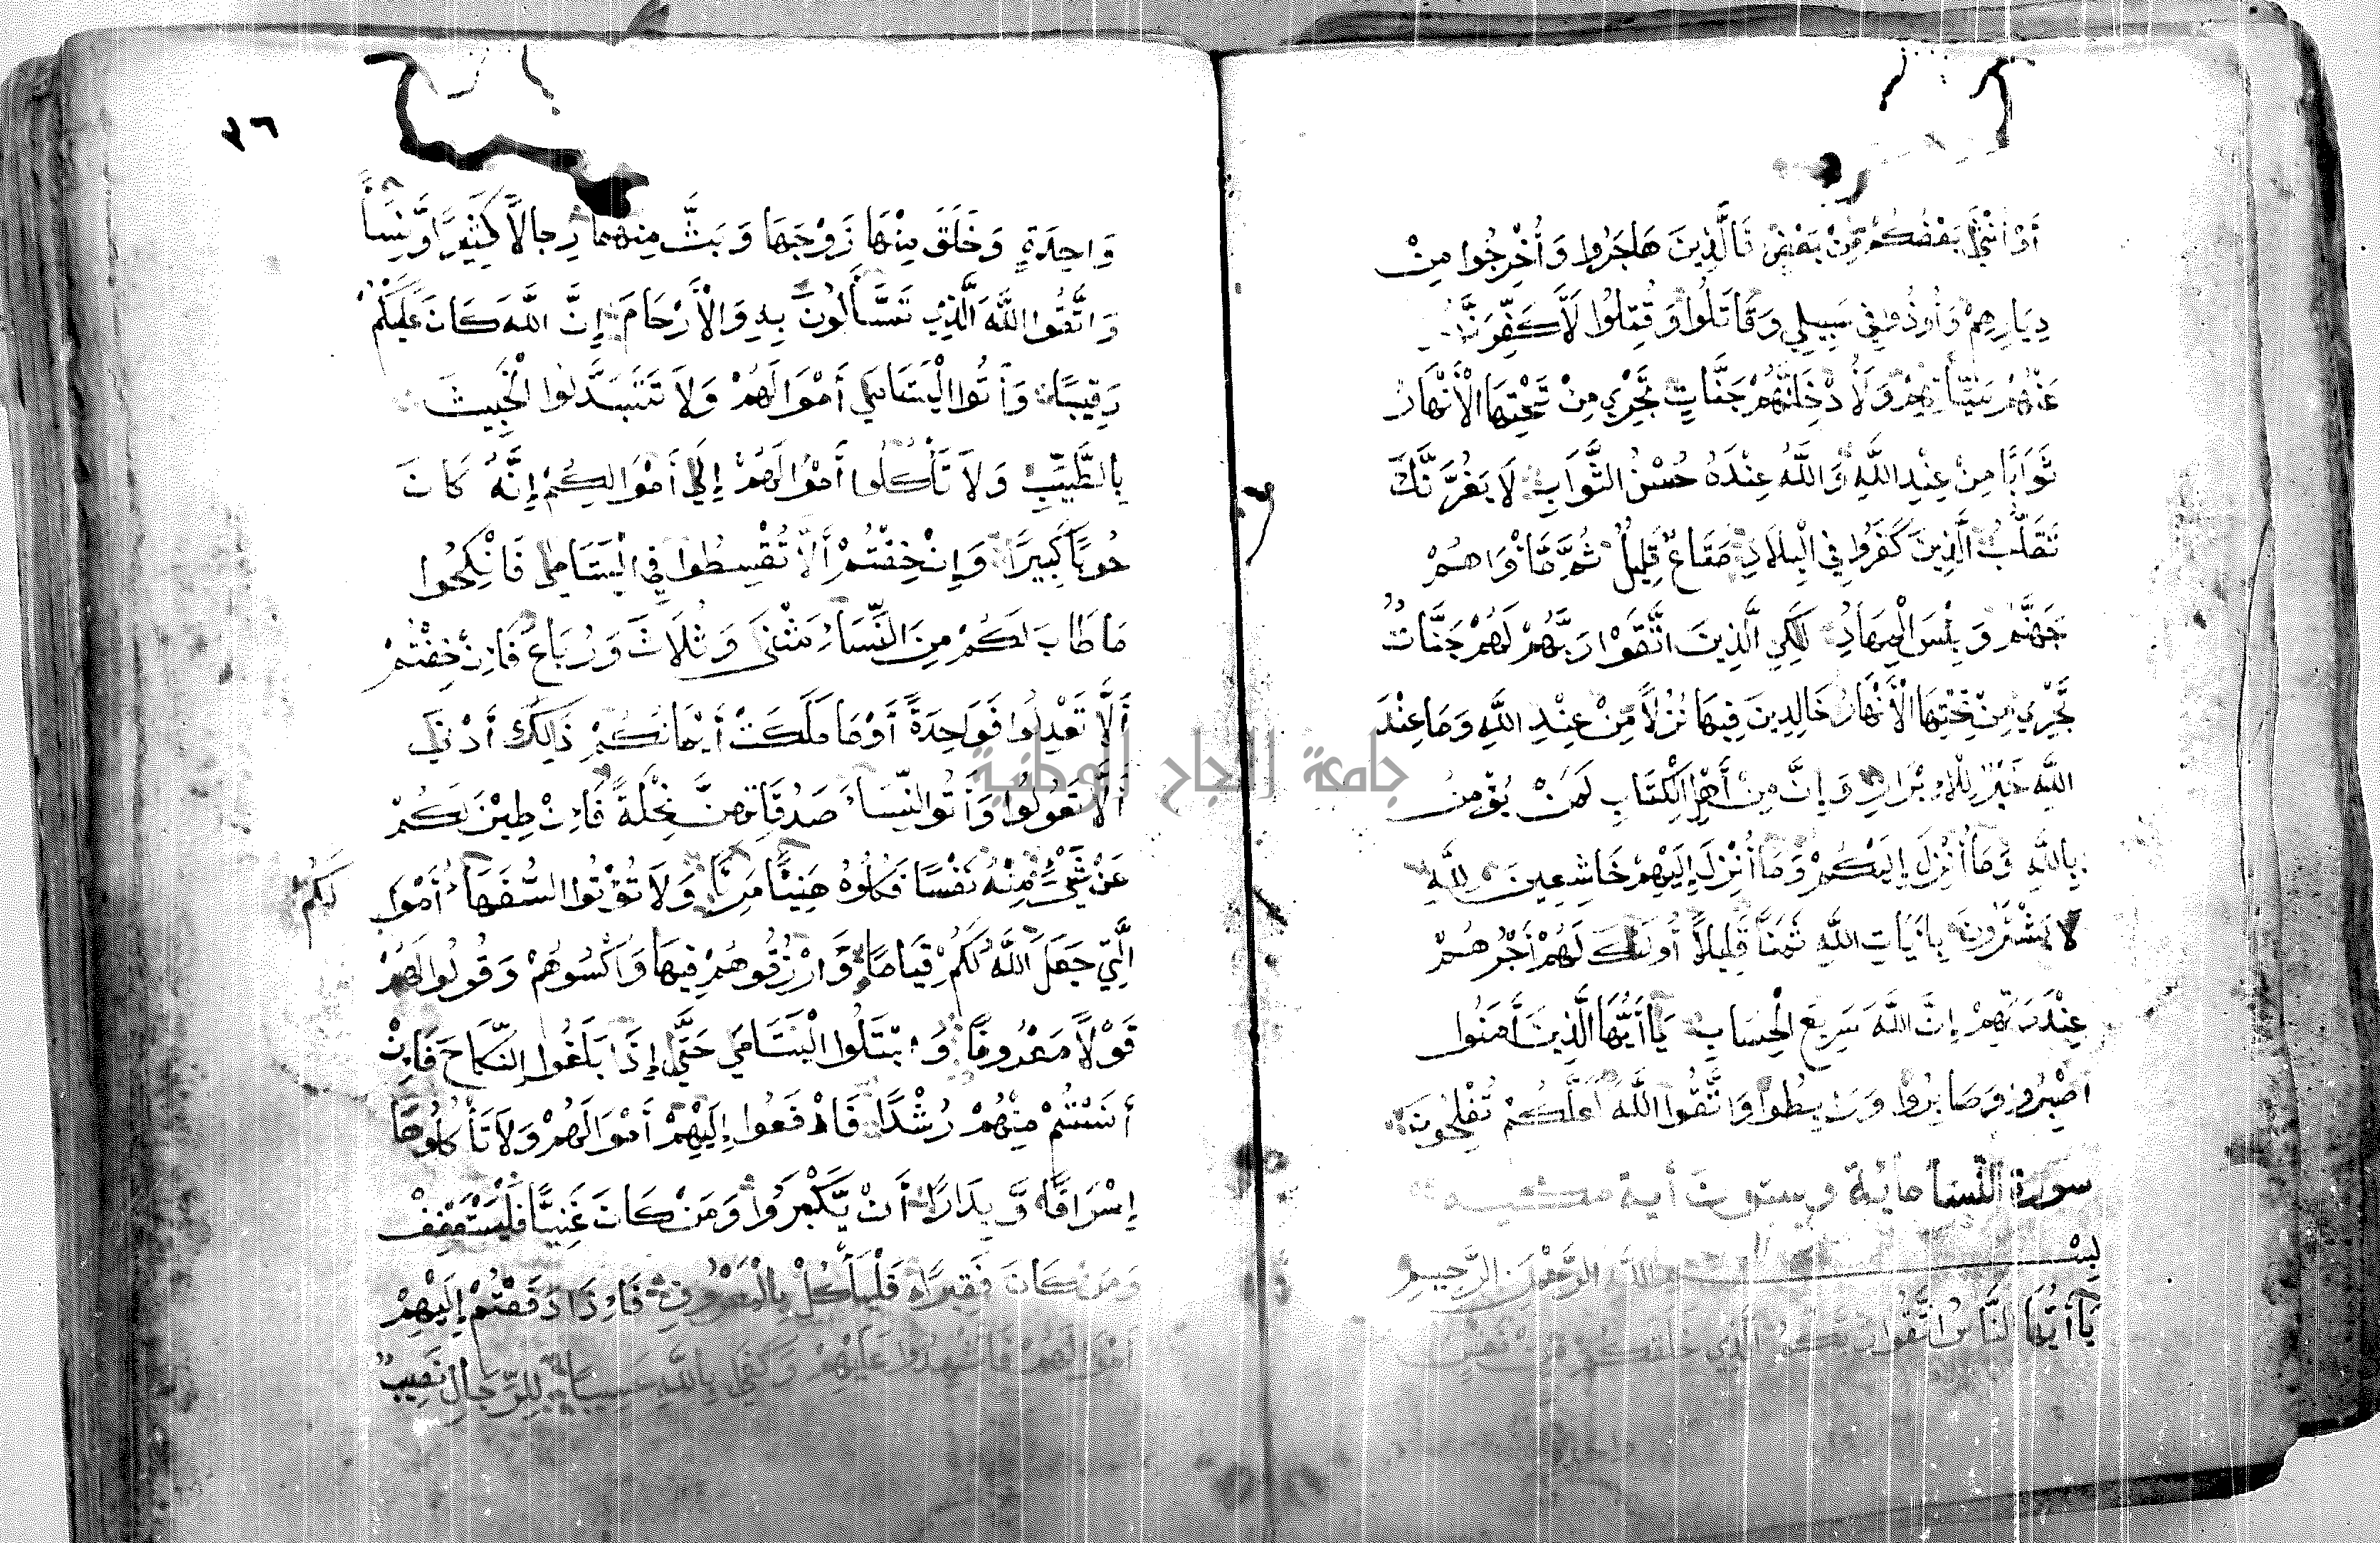 أَوْ أُنْثَى بَعْضُكُمْ مِّنْ بَعْضٍ فَالَّذِينَ هَاجَرُوا وَأُخْرِجُوا مِنْ
دِيَارِهِمْ وَأُوذُوا فِي سَبِيلِي وَقَاتَلُوا وَقُتِلُوا لَأُكَفِّرَنَّ
عَنْهُمْ سَيِّئَاتِهِمْ وَلَأُدْخِلَنَّهُمْ جَنَّاتٍ تَجْرِي مِنْ تَحْتِهَا الْأَنْهَارُ
ثَوَابًا مِنْ عِنْدِ اللَّهِ وَاللَّهُ عِنْدَهُ حُسْنُ الثَّوَابِ لَا يَغُرَّنَّكَ
تَقَلُّبُ الَّذِينَ كَفَرُوا فِي الْبِلَادِ مَتَاعٌ قَلِيلٌ ثُمَّ مَأْوَاهُمْ
جَهَنَّمُ وَبِئْسَ الْمِهَادُ لَكِنِ الَّذِينَ اتَّقَوْا رَبَّهُمْ لَهُمْ جَنَّاتٌ
تَجْرِي مِنْ تَحْتِهَا الْأَنْهَارُ خَالِدِينَ فِيهَا نُزُلًا مِّنْ عِنْدِ اللَّهِ وَمَا عِنْدَ
اللَّهِ خَيْرٌ لِلْأَبْرَارِ وَإِنَّ مِنْ أَهْلِ الْكِتَابِ لَمَنْ يُؤْمِنُ
بِاللَّهِ وَمَا أُنْزِلَ إِلَيْكُمْ وَمَا أُنْزِلَ إِلَيْهِمْ خَاشِعِينَ لِلَّهِ
لَا يَشْتَرُونَ بِآيَاتِ اللَّهِ ثَمَنًا قَلِيلًا أُولَئِكَ لَهُمْ أَجْرُهُمْ
عِنْدَ رَبِّهِمْ إِنَّ اللَّهَ سَرِيعُ الْحِسَابِ يَا أَيُّهَا الَّذِينَ آمَنُوا
اصْبِرُوا وَصَابِرُوا وَرَابِطُوا وَاتَّقُوا اللَّهَ لَعَلَّكُمْ تُفْلِحُونَ
سورة النسا مائة وستون آية
بِسْمِ اللَّهِ الرَّحْمَنِ الرَّحِيمِ
يَا أَيُّهَا النَّاسُ اتَّقُوا رَبَّكُمُ الَّذِي خَلَقَكُمْ مِنْ نَفْسٍ
٣٦
وَاحِدَةٍ وَخَلَقَ مِنْهَا زَوْجَهَا وَبَثَّ مِنْهُمَا رِجَالًا كَثِيرًا وَّنِسَاءً
وَاتَّقُوا اللَّهَ الَّذِي تَسَّاءَلُونَ بِهِ وَالْأَرْحَامَ إِنَّ اللَّهَ كَانَ عَلَيْكُمْ
رَقِيبًا وَآتُوا الْيَتَامَى أَمْوَالَهُمْ وَلَا تَتَبَدَّلُوا الْخَبِيثَ
بِالطَّيِّبِ وَلَا تَأْكُلُوا أَمْوَالَهُمْ إِلَى أَمْوَالِكُمْ إِنَّهُ كَانَ
حُوبًا كَبِيرًا وَإِنْ خِفْتُمْ أَلَّا تُقْسِطُوا فِي الْيَتَامَى فَانْكِحُوا
مَا طَابَ لَكُمْ مِنَ النِّسَاءِ مَثْنَى وَثُلَاثَ وَرُبَاعَ فَإِنْ خِفْتُمْ
أَلَّا تَعْدِلُوا فَوَاحِدَةً أَوْ مَا مَلَكَتْ أَيْمَانُكُمْ ذَالِكَ أَدْنَى
أَلَّا تَعُولُوا وَآتُوا النِّسَاءَ صَدُقَاتِهِنَّ نِحْلَةً فَإِنْ طِبْنَ لَكُمْ
عَنْ شَيْءٍ مِنْهُ نَفْسًا فَكُلُوهُ هَنِيئًا مَرِيئًا وَلَا تُؤْتُوا السُّفَهَاءَ أَمْوَالَكُمُ
الَّتِي جَعَلَ اللَّهُ لَكُمْ قِيَامًا وَارْزُقُوهُمْ فِيهَا وَاكْسُوهُمْ وَقُولُوا لَهُمْ
قَوْلًا مَعْرُوفًا وَابْتَلُوا الْيَتَامَى حَتَّى إِذَا بَلَغُوا النِّكَاحَ فَإِنْ
آنَسْتُمْ مِنْهُمْ رُشْدًا فَادْفَعُوا إِلَيْهِمْ أَمْوَالَهُمْ وَلَا تَأْكُلُوهَا
إِسْرَافًا وَّبِدَارًا أَنْ يَّكْبَرُوا وَمَنْ كَانَ غَنِيًّا فَلْيَسْتَعْفِفْ
وَمَنْ كَانَ فَقِيرًا فَلْيَأْكُلْ بِالْمَعْرُوفِ فَإِذَا دَفَعْتُمْ إِلَيْهِمْ
أَمْوَالَهُمْ فَأَشْهِدُوا عَلَيْهِمْ وَكَفَى بِاللَّهِ حَسِيبًا لِلرِّجَالِ نَصِيبٌ
جامعة النجاح الوطنية